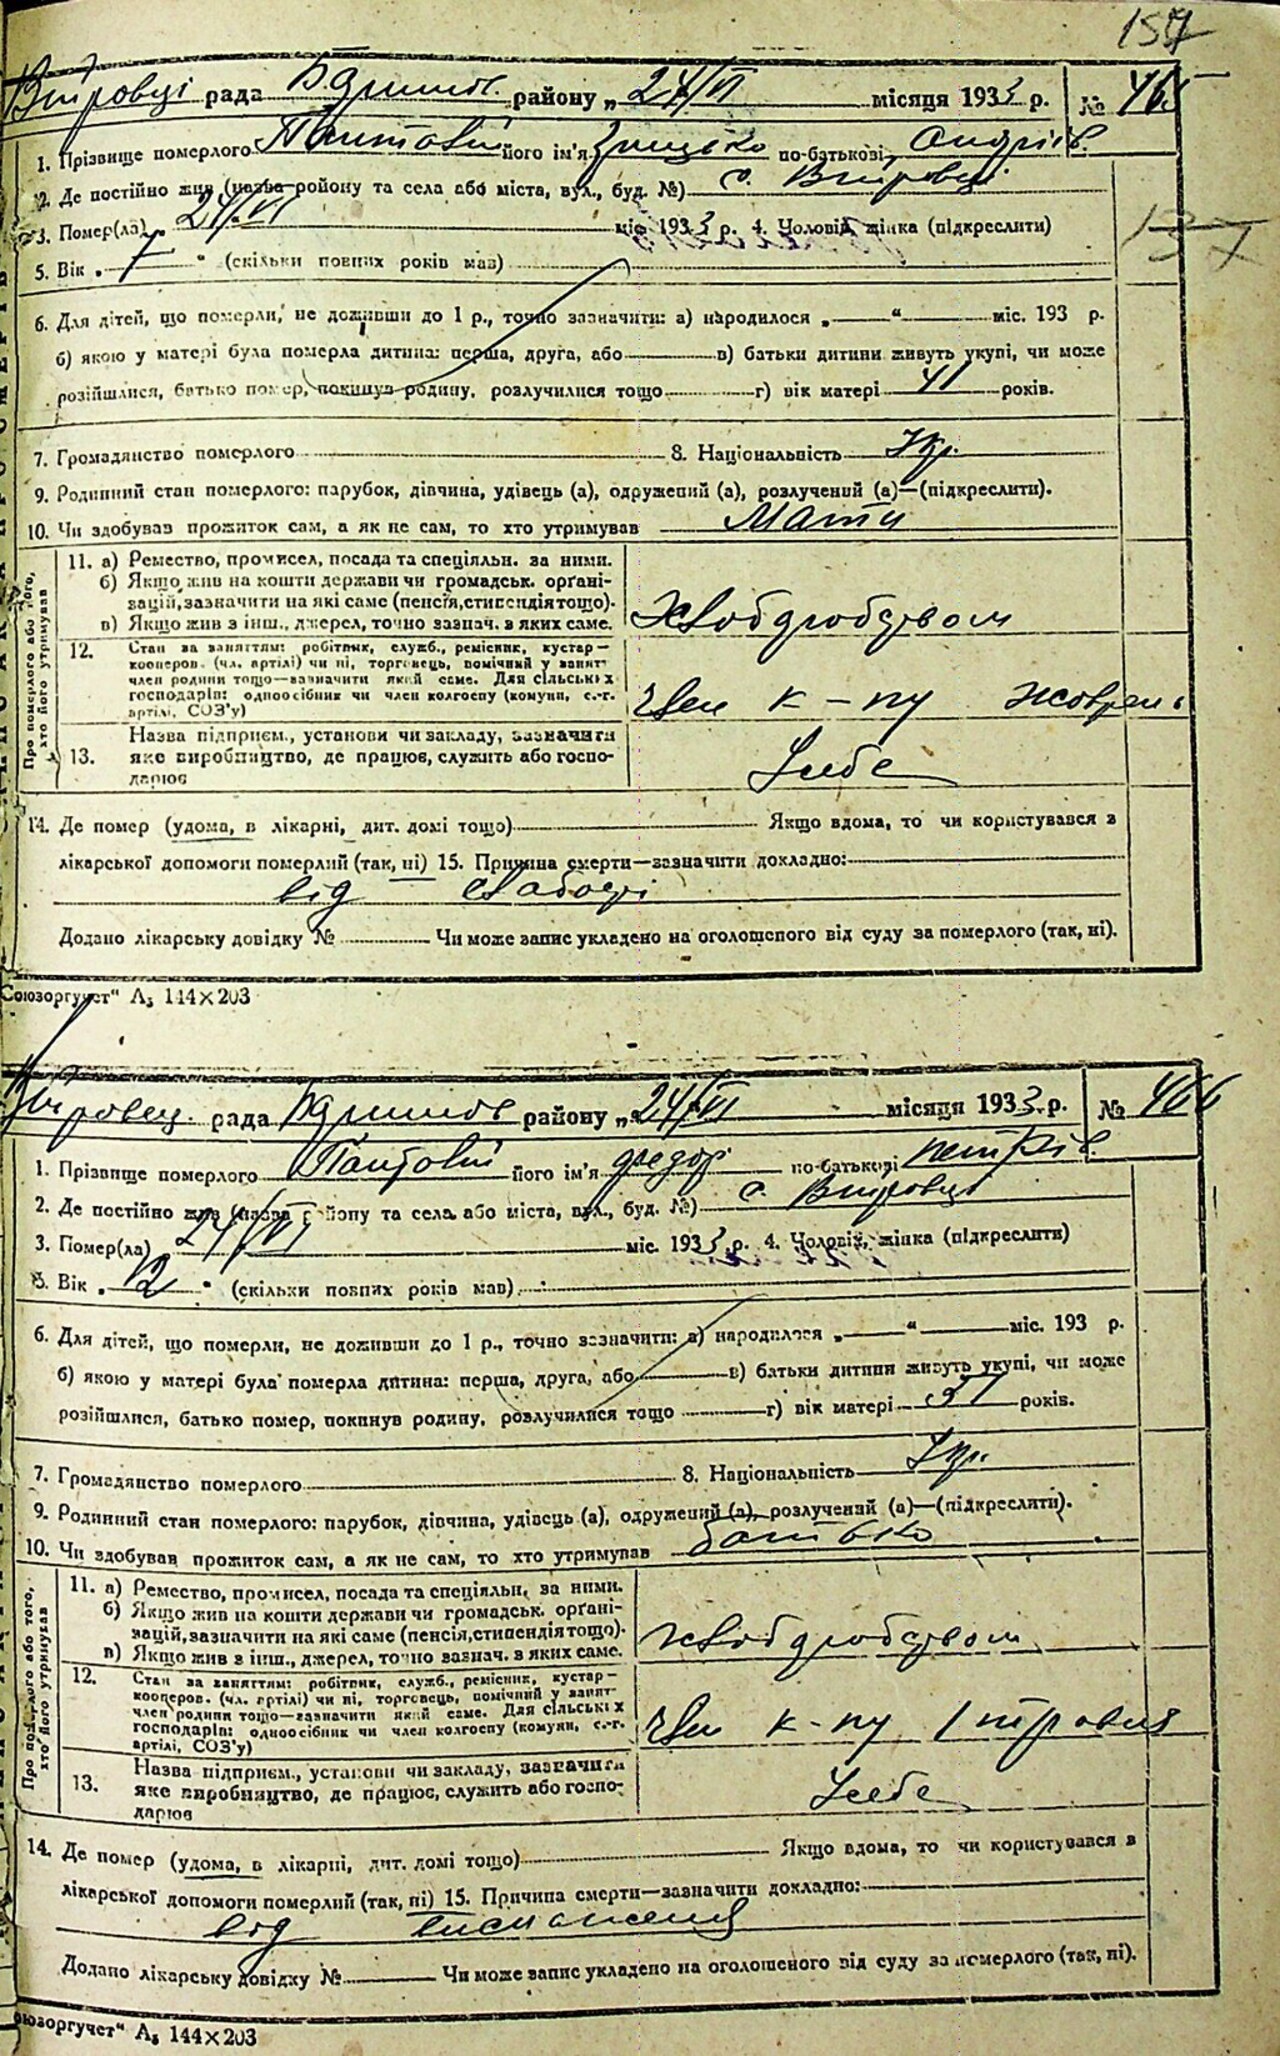 157
Вітровці рада Бдиллов. району „ 24/VI місяця 1933 р. № 465
1. Прізвище померлого Пантовій його ім'я Грицько по-батькові Андріїв.
2. Де постійно жив (назва району та села або міста, вул., буд. №) с. Вітровці
3. Помер(ла) 24/VI міс. 1933 р. 4. Чоловік, жінка (підкреслити)
137
5. Вік „ 7 “ (скільки повних років мав)
6. Для дітей, що померли, не доживши до 1 р., точно зазначити: а) народилося „ “ міс. 193 р.
б) якою у матері була померла дитина: перша, друга, або в) батьки дитини живуть укупі, чи може
розійшлися, батько помер, покинув родину, розлучилися тощо г) вік матері 41 років.
7. Громадянство померлого 8. Національність Укр.
9. Родинний стан померлого: парубок, дівчина, удівець (а), одружений (а), розлучений (а)—(підкреслити).
10. Чи здобував прожиток сам, а як не сам, то хто утримував Мати
Про померлого або того, хто його утримував
11. а) Ремество, промисел, посада та спеціяльн. за ними.
б) Якщо жив на кошти держави чи громадськ. орґані-
зацій, зазначити на які саме (пенсія, стипендія тощо).
в) Якщо жив з інш., джерел, точно зазнач. з яких саме.
Хлібдробством
12. Стан за заняттям: робітник, служб., ремісник, кустар—
кооперов. (чл. артілі) чи ні, торговець, помічний у занят-
член родини тощо—зазначити який саме. Для сільських
господарів: одноосібник чи член колгоспу (комуни, с.-г.
артілі, СОЗ'у)
Член к-пу Жовтень
13. Назва підприєм., установи чи закладу, зазначити
яке виробництво, де працює, служить або госпо-
дарює
У себе
14. Де помер (удома, в лікарні, дит. домі тощо) Якщо вдома, то чи користувався з
лікарської допомоги померлий (так, ні) 15. Причина смерти—зазначити докладно:
від слабости
Додано лікарську довідку № Чи може запис укладено на оголошеного від суду за померлого (так, ні).
Союзоргучет“ А₅ 144×203
Вітровец. рада району „ 24/VI місяця 1933 р. № 466
1. Прізвище померлого Пантовій його ім'я Федор по-батькові Петрів.
2. Де постійно жив (назва району та села або міста, вул., буд. №) с. Вітровці
3. Помер(ла) 24/VI міс. 1933 р. 4. Чоловік, жінка (підкреслити)
5. Вік „ 12 “ (скільки повних років мав)
6. Для дітей, що померли, не доживши до 1 р., точно зазначити: а) народилося „ “ міс. 193 р.
б) якою у матері була померла дитина: перша, друга, або в) батьки дитини живуть укупі, чи може
розійшлися, батько помер, покинув родину, розлучилися тощо г) вік матері 37 років.
7. Громадянство померлого 8. Національність Укр.
9. Родинний стан померлого: парубок, дівчина, удівець (а), одружений (а), розлучений (а)—(підкреслити).
10. Чи здобував прожиток сам, а як не сам, то хто утримував батько
Про померлого або того, хто його утримував
11. а) Ремество, промисел, посада та спеціяльн. за ними.
б) Якщо жив на кошти держави чи громадськ. орґані-
зацій, зазначити на які саме (пенсія, стипендія тощо).
в) Якщо жив з інш., джерел, точно зазнач. з яких саме.
хлібдробством
12. Стан за заняттям: робітник, служб., ремісник, кустар—
кооперов. (чл. артілі) чи ні, торговець, помічний у занят-
член родини тощо—зазначити який саме. Для сільських
господарів: одноосібник чи член колгоспу (комуни, с.-г.
артілі, СОЗ'у)
Член к-пу 1 травня
13. Назва підприєм., установи чи закладу, зазначити
яке виробництво, де працює, служить або госпо-
дарює
У себе
14. Де помер (удома, в лікарні, дит. домі тощо) Якщо вдома, то чи користувався з
лікарської допомоги померлий (так, ні) 15. Причина смерти—зазначити докладно:
від виснаження
Додано лікарську довідку № Чи може запис укладено на оголошеного від суду за померлого (так, ні).
оюзоргучет“ А₅ 144×203